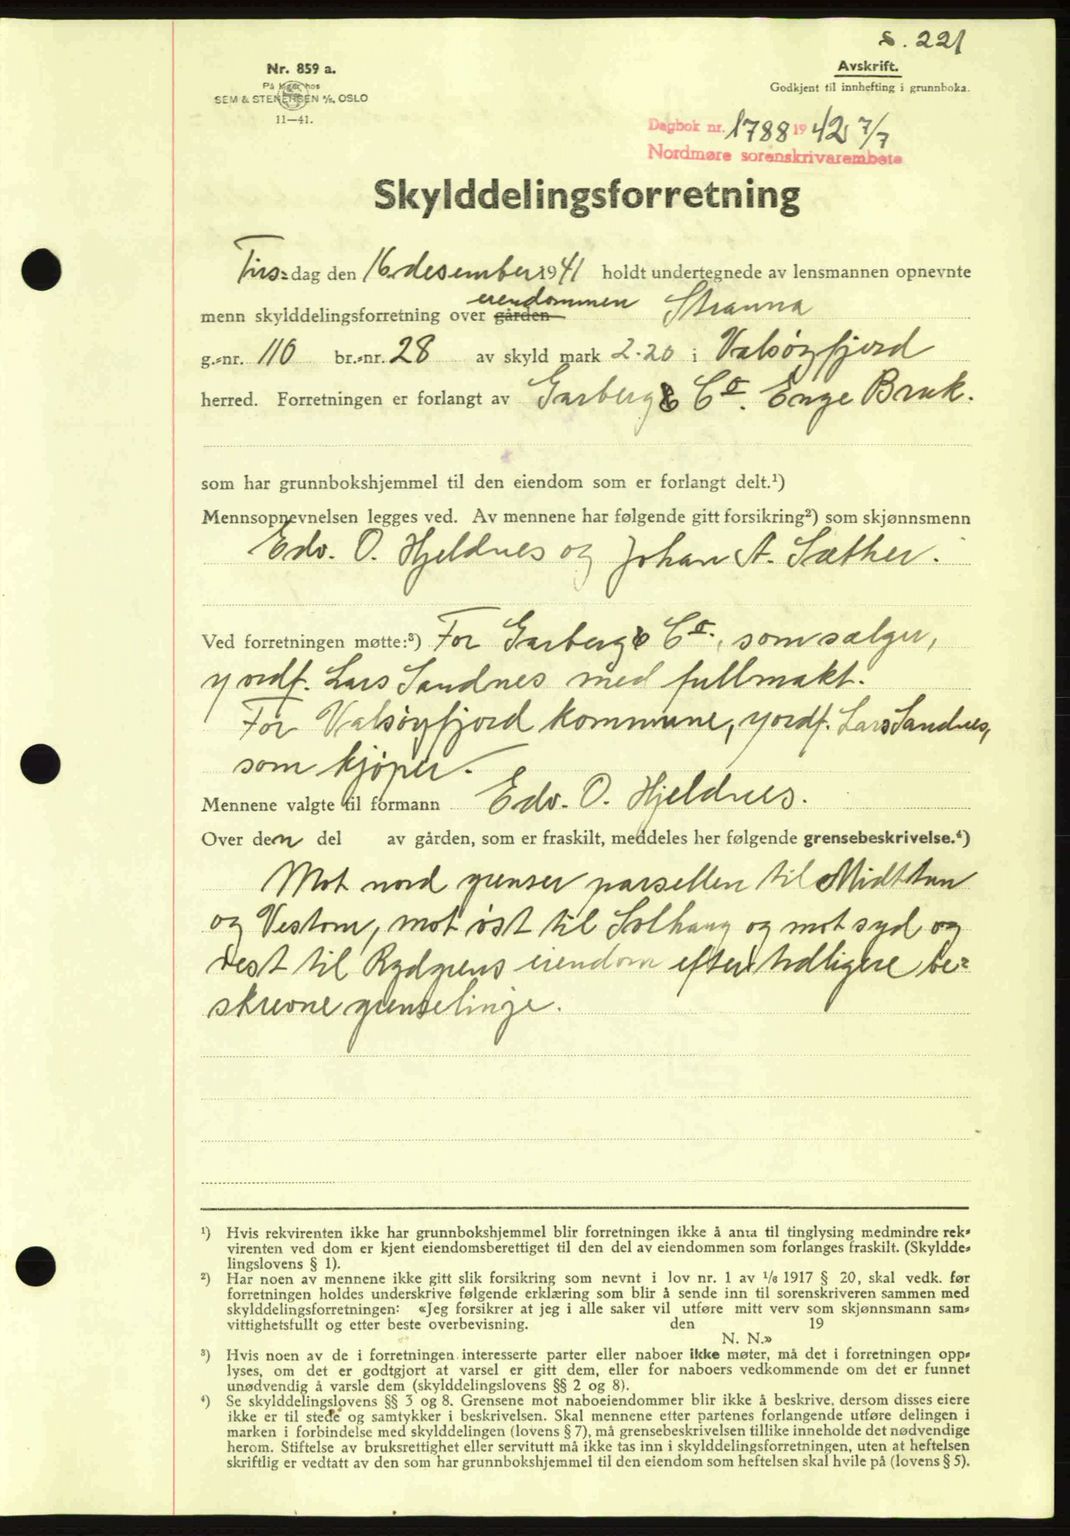 s. 221
Nr. 859 a.
På lager hos
SEM & STENERSEN A/S, OSLO
11—41.
Avskrift.
Godkjent til innhefting i grunnboka.
Dagbok nr. 1788 1942 7/7
Nordmøre sorenskrivarembete
Skylddelingsforretning
Tirs-dag den 16 desember 1941 holdt undertegnede av lensmannen opnevnte
menn skylddelingsforretning over gården eiendommen Stranna
g.-nr. 110 br.-nr. 28 av skyld mark 2.20 i Valsøyfjord
herred. Forretningen er forlangt av Garberg & Co. Enge Bruk.
som har grunnbokshjemmel til den eiendom som er forlangt delt.¹)
Mennsopnevnelsen legges ved. Av mennene har følgende gitt forsikring²) som skjønnsmenn
Edv. O. Hjeldnes og Johan A. Sæther.
Ved forretningen møtte:³) For Garberg & Co., som sælger,
v ordf. Lars Sandnes med fullmakt.
For Valsøyfjord kommune, v ordf. Lars Sandnes,
som kjøper.
Mennene valgte til formann Edv. O. Hjeldnes.
Over den del av gården, som er fraskilt, meddeles her følgende grensebeskrivelse.⁴)
Mot nord grenser parsellen til Midttun
og Vestom, mot øst til Solhaug og mot syd og
vest til Rydgrens eiendom efter tidligere be-
skrevne grenselinje.
¹) Hvis rekvirenten ikke har grunnbokshjemmel blir forretningen ikke å anta til tinglysing medmindre rek-
virenten ved dom er kjent eiendomsberettiget til den del av eiendommen som forlanges fraskilt. (Skyldde-
lingslovens § 1).
²) Har noen av mennene ikke gitt slik forsikring som nevnt i lov nr. 1 av 1/6 1917 § 20, skal vedk. før
forretningen holdes underskrive følgende erklæring som blir å sende inn til sorenskriveren sammen med
skylddelingsforretningen: «Jeg forsikrer at jeg i alle saker vil utføre mitt verv som skjønnsmann sam-
vittighetsfullt og etter beste overbevisning. den 19
N. N.»
³) Hvis noen av de i forretningen interesserte parter eller naboer ikke møter, må det i forretningen opp-
lyses, om det er godtgjort at varsel er gitt dem, eller for naboers vedkommende om det er funnet
unødvendig å varsle dem (skylddelingslovens §§ 2 og 8).
⁴) Se skylddelingslovens §§ 3 og 8. Grensene mot naboeiendommer blir ikke å beskrive, dersom disses eiere
ikke er til stede og samtykker i beskrivelsen. Skal mennene etter partenes forlangende utføre delingen i
marken i forbindelse med skylddelingen (lovens § 7), må grensebeskrivelsen tillike inneholde det nødvendige
herom. Stiftelse av bruksrettighet eller servitutt må ikke tas inn i skylddelingsforretningen, uten at heftelsen
skriftlig er vedtatt av den som har grunnbokshjemmel til den eiendom som heftelsen skal hvile på (lovens § 5).